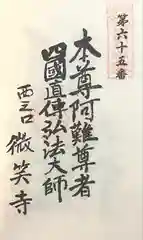 第六十五番
本尊阿難尊者
四國直傳弘法大師
西谷
微笑寺